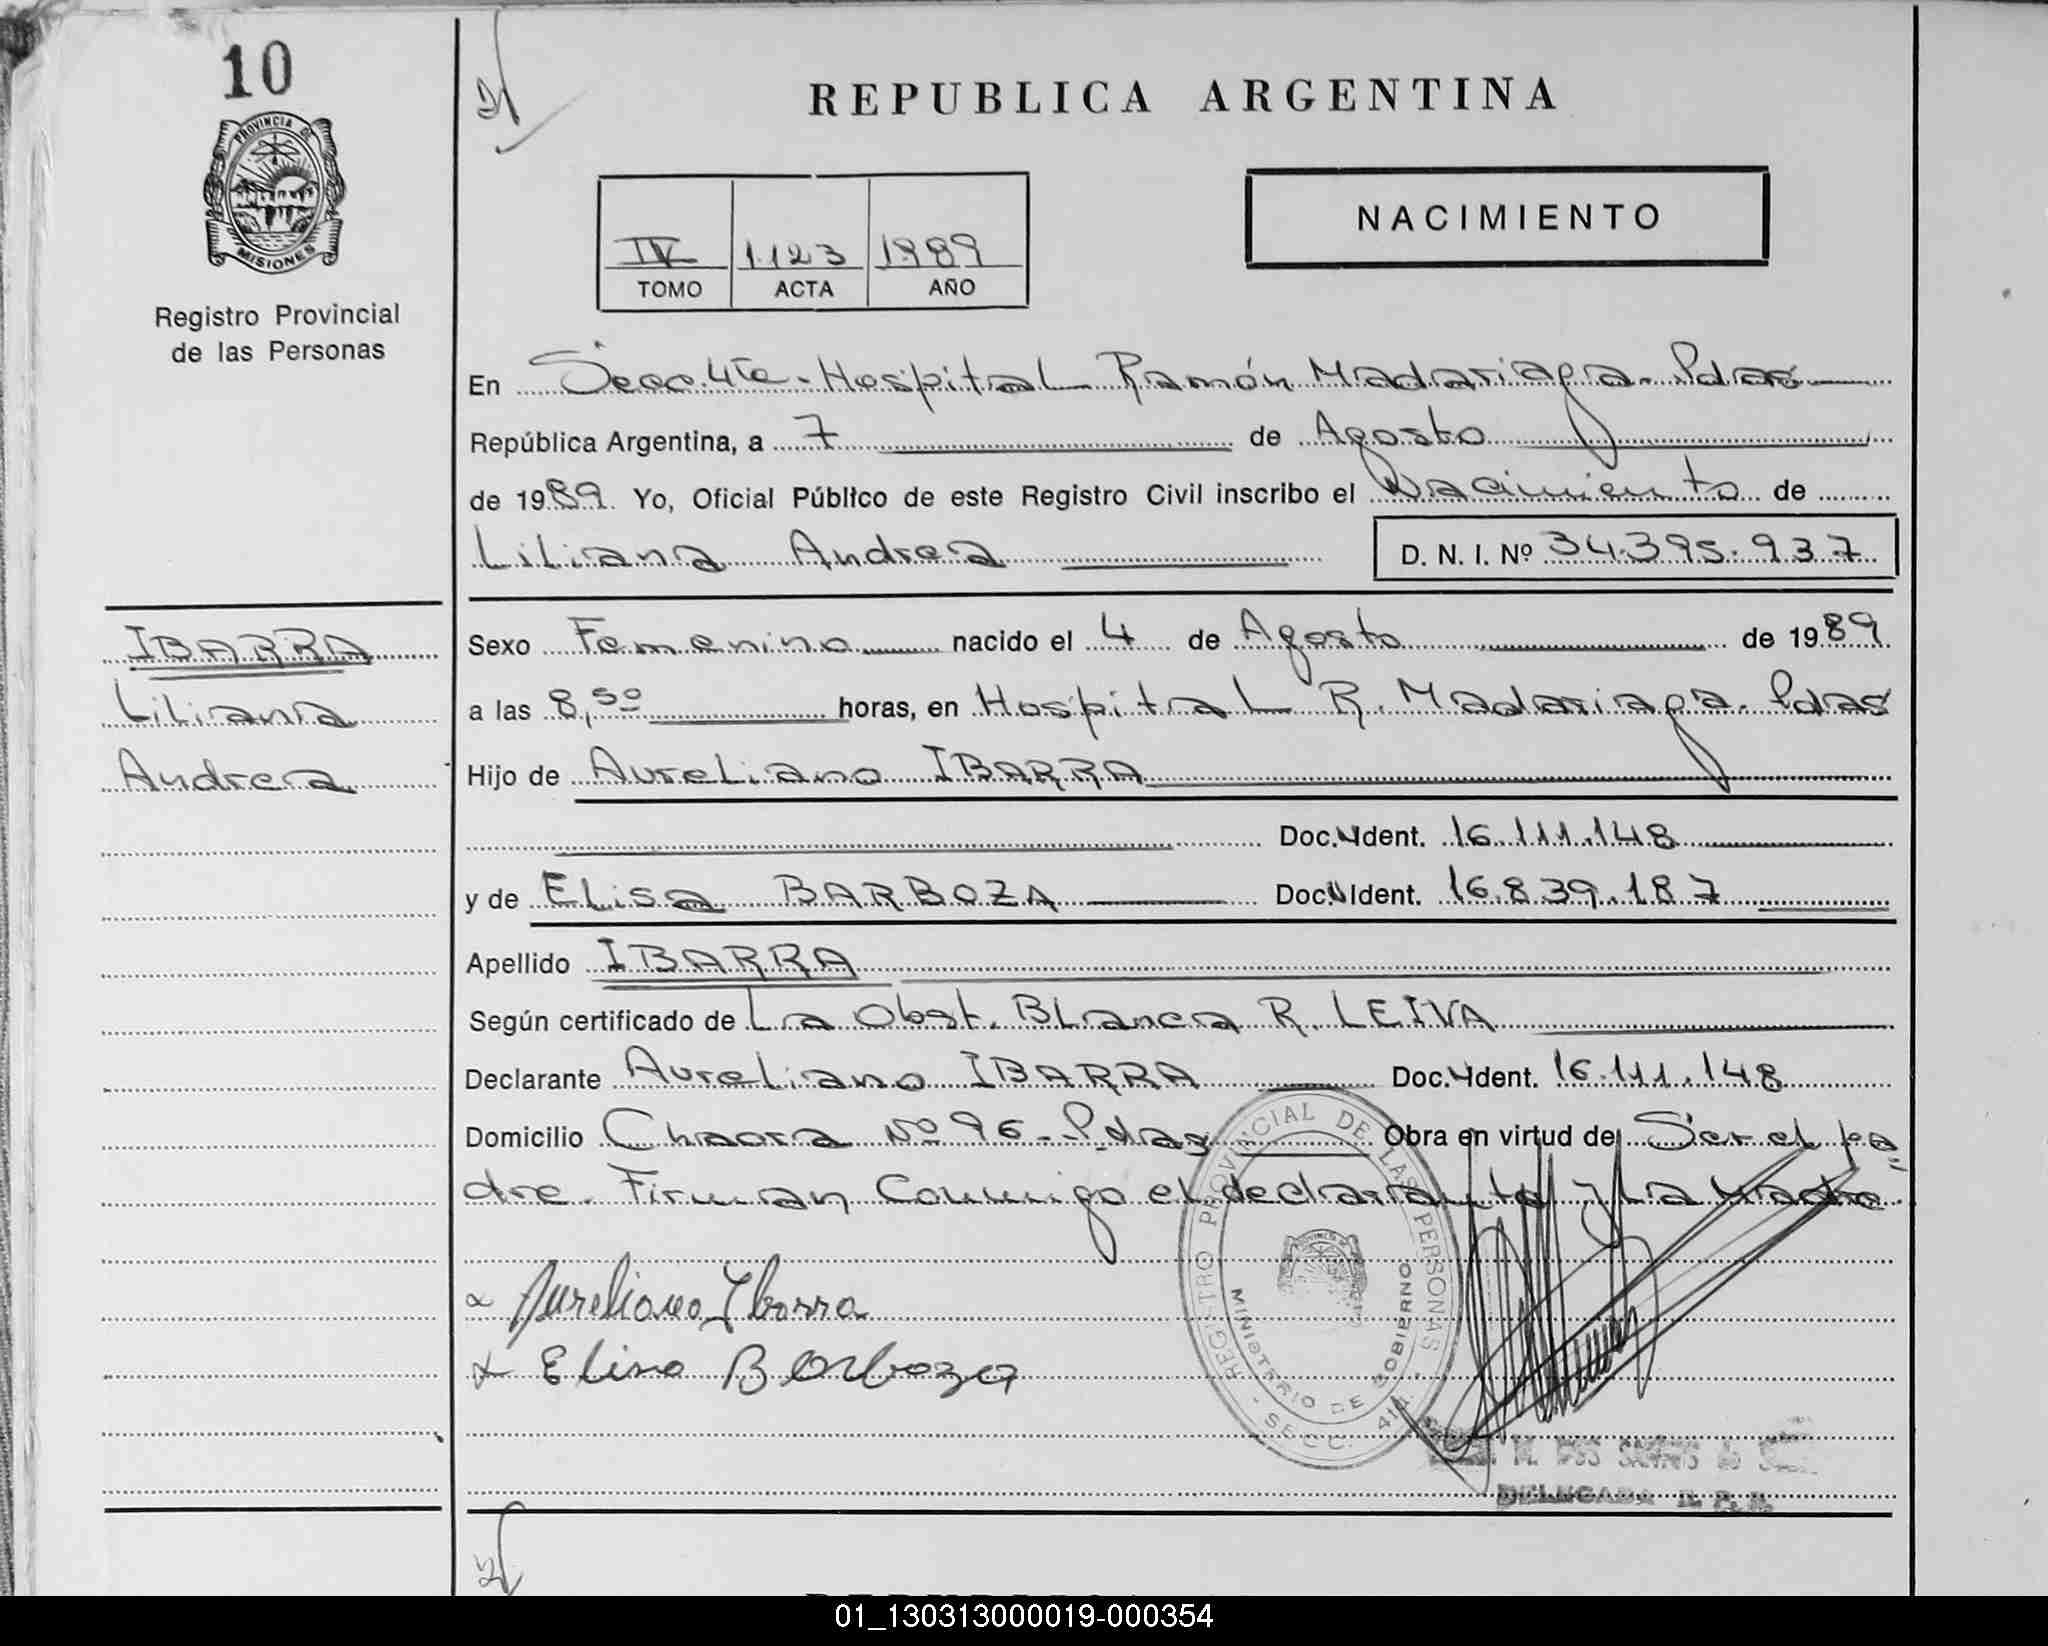 10
PROVINCIA DE
MISIONES
Registro Provincial
de las Personas
REPUBLICA ARGENTINA
NACIMIENTO
IV 1123 1989
TOMO ACTA AÑO
En Secc. 4ta. Hospital Ramón Madariaga. Pdas
República Argentina, a 7 de Agosto
de 1989. Yo, Oficial Público de este Registro Civil inscribo el Nacimiento de
Liliana Andrea D. N. I. Nº 34.395.937
IBARRA
Liliana
Andrea
Sexo Femenino nacido el 4 de Agosto de 1989
a las 8,50 horas, en Hospital R. Madariaga. Pdas
Hijo de Aureliano IBARRA
Doc. Ident. 16.111.148
y de Elisa BARBOZA Doc. Ident. 16.839.187
Apellido IBARRA
Según certificado de La Obst. Blanca R. LEIVA
Declarante Aureliano IBARRA Doc. Ident. 16.111.148
Domicilio Chacra Nº 96 - Pdas Obra en virtud de Ser el pa
dre. Firman Conmigo el declarante y La Madre.
Aureliano Ibarra
Elisa Barboza
REGISTRO PROVINCIAL DE LAS PERSONAS
MINISTERIO DE GOBIERNO
SECC. 4ta.
M. DOS SANTOS de
DELEGADA R. P. P.
01_130313000019-000354